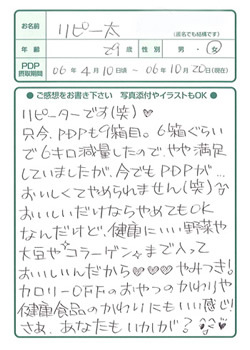 お名前 リピー太
(匿名でも結構です)
年齢 29歳 性別 男・女
PDP摂取期間 06年4月10日頃～06年10月20日(現在)
●ご感想をお書き下さい 写真添付やイラストもOK●
リピーターです(笑)♥
只今、PDPも9箱目。6箱ぐらい
で6キロ減量したので、やや満足
していましたが、今でもPDPが…
おいしくてやめられません(笑)
おいしいだけならやめてもOK
なんだけど、健康にいい野菜や
大豆やコラーゲンまで入って
おいしいんだから♥♥♥やみつき!
カロリーOFFのおやつのかわりや
健康食品のかわりにもいい感じ!
さぁ、あなたもいかが?